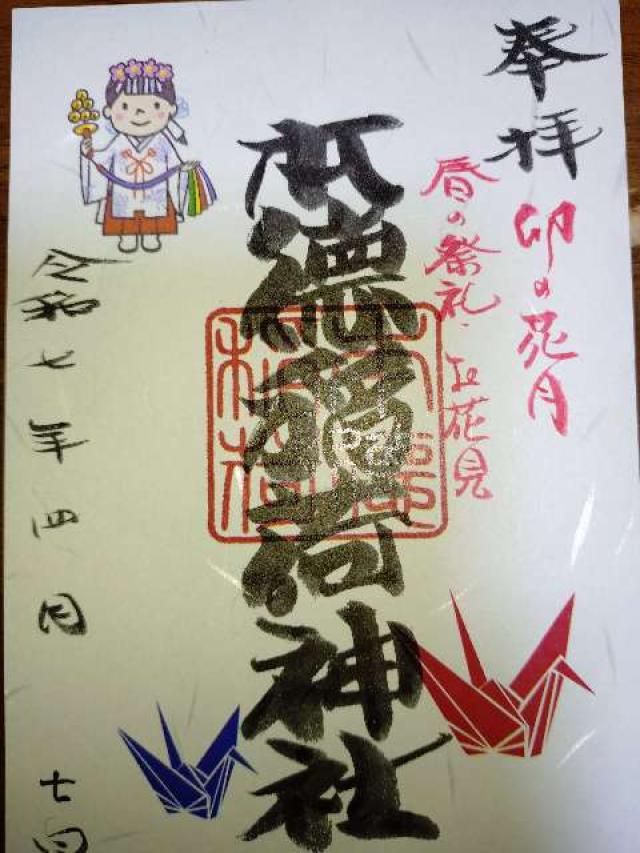 奉拝
卯の花月
春の祭礼・お花見
徳稲荷神社
令和七年四月七日